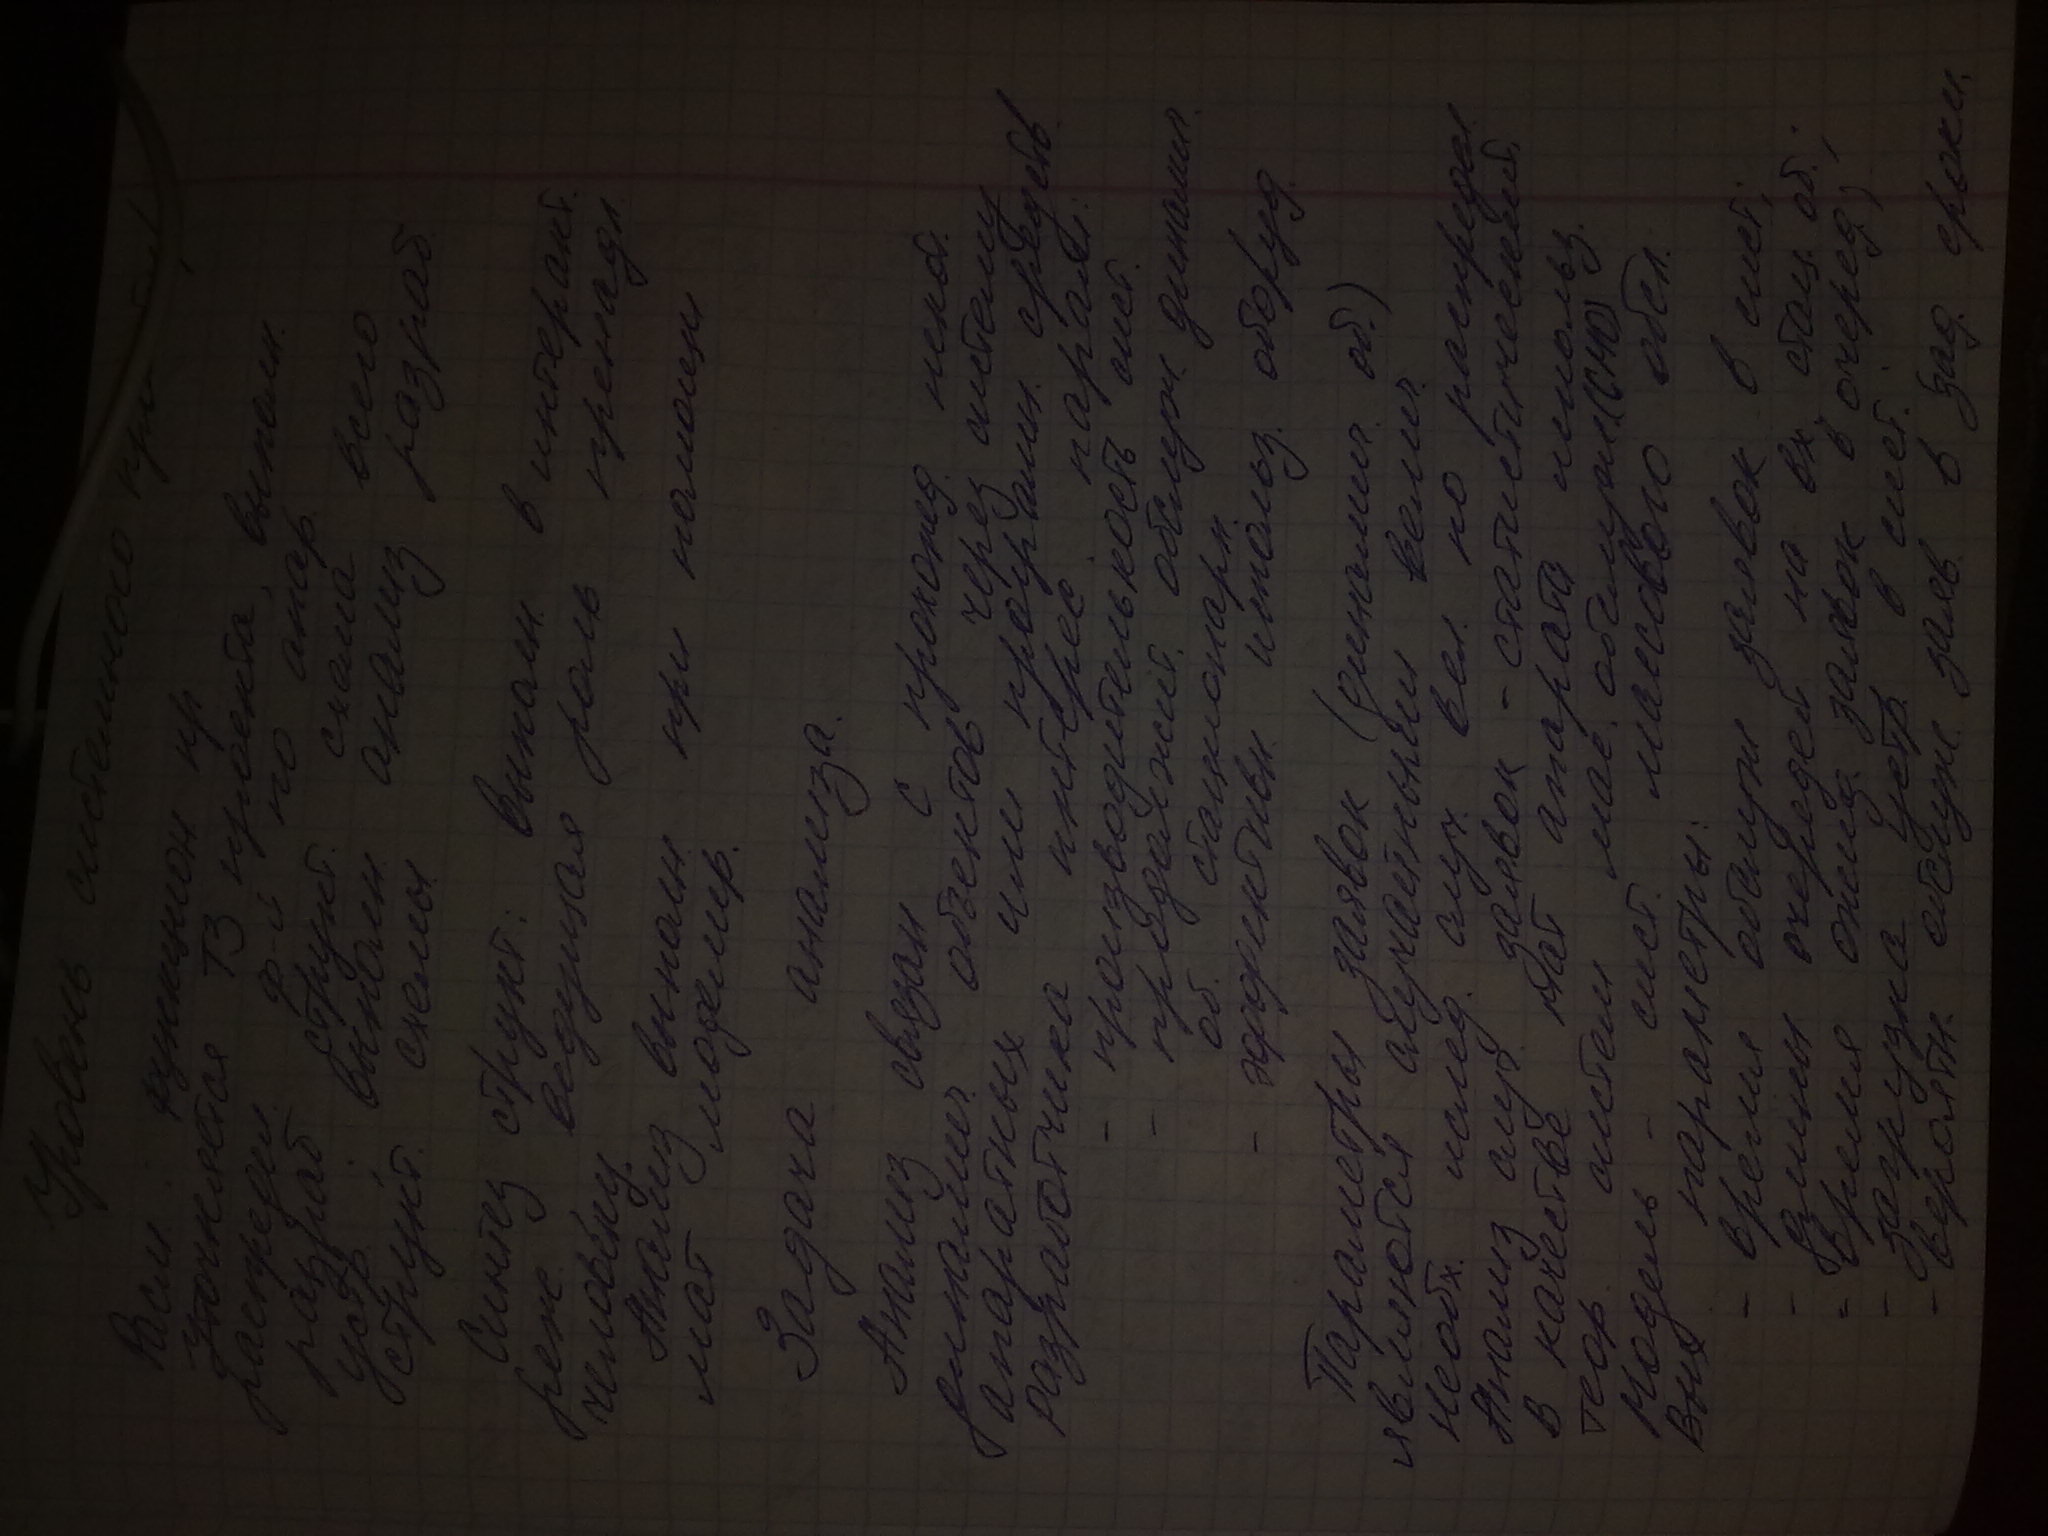 Уровень системного
Всп. функцион пр
Уточняется ТЗ проекта, выполн.
распредел. ф-й по апар.
разраб структ. схема всего
устр. выполн анализ разраб
структ. схемы
Синтез структ. выполн в интеракт.
реж. ведущая роль принадл.
человеку.
Анализ выполн при помощи
мат модеlир.
Задача анализа.
Анализ связан с прохожд. некот.
динамич. объектов через систему
апаратных или програмн. средств.
разработчика интерес парам:
- производительность сист.
- продолжит. обслуж динамич.
об. стационарн.
- эффективн использ. оборуд.
Параметры заявок (динамич. об.)
являются случайными велич.
необх. исслед. случ вел по распредел.
Анализ случ. заявок - статистический.
В качестве мат апарата использ.
теор. систем мас. обслужив.(СМО)
Модель - сист. массового обсл.
Вых параметры:
- время обслуж заявок в сист;
- длины очередей на вх стац. об.;
- время ожид. заявок в очеред;
- загрузка устр. в сист.
- вероятн. обслуж заяв в зад. сроки.